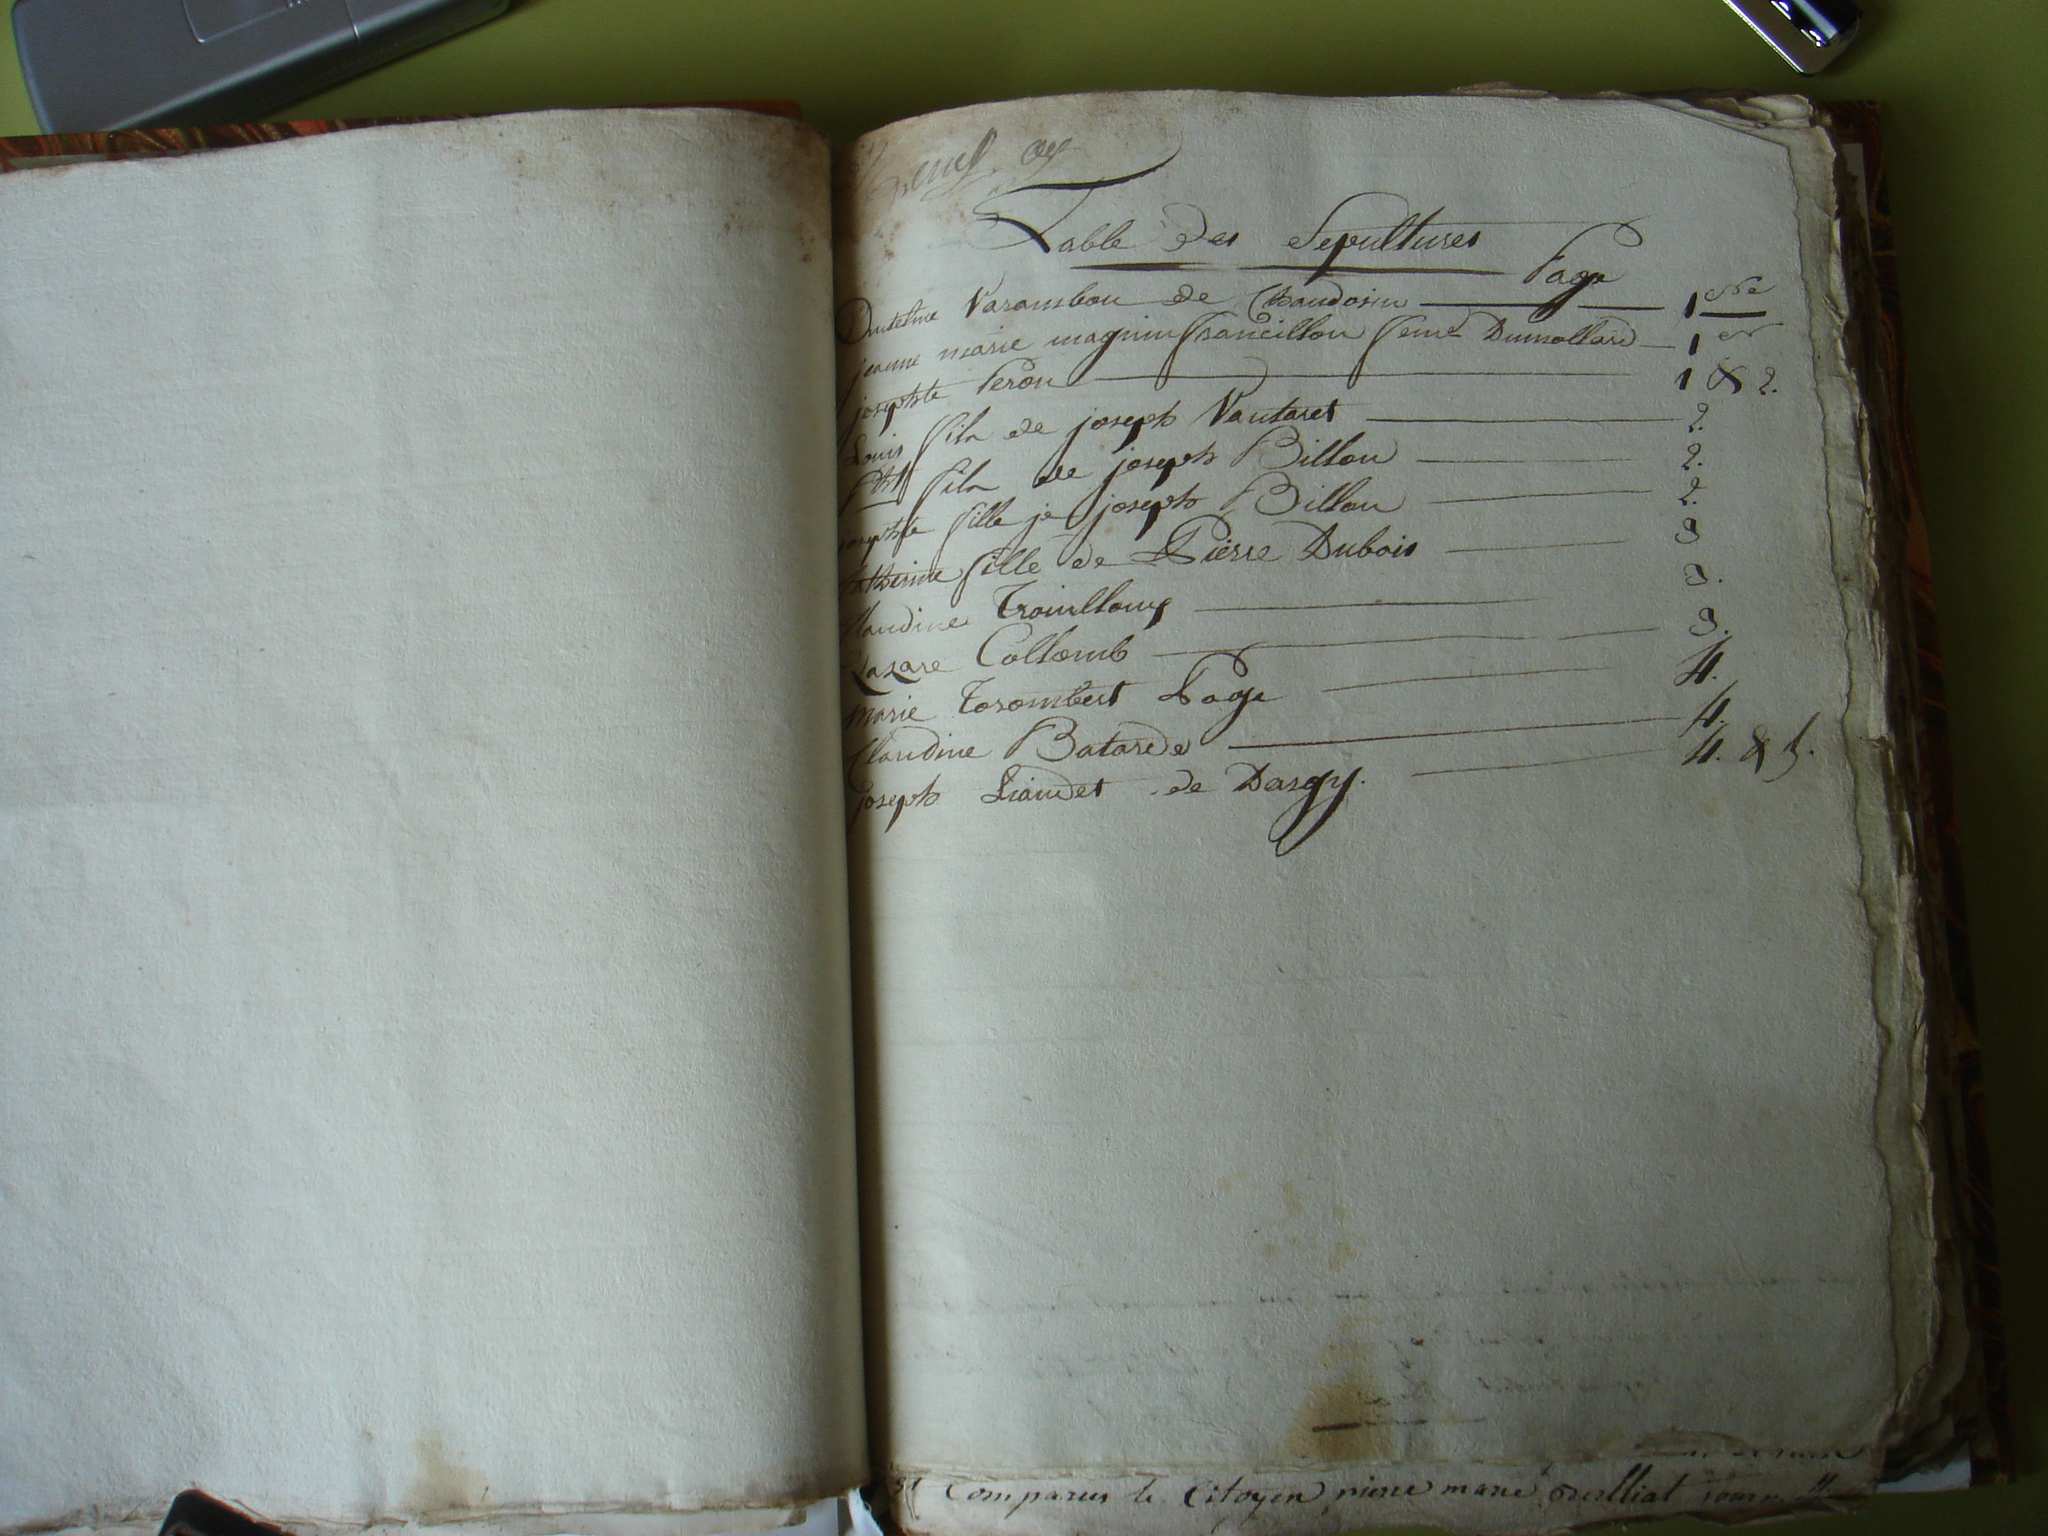 Table des Sepultures
Page
Varambon de Chaudosin 1ere
jeanne marie magnin francillon feme Dumollard 1er
josephte Peron 1 & 2.
Louis fils de joseph Vautaret 2.
fils de joseph Billon 2.
josephte fille je joseph Billon 2.
Catherine fille de Pierre Dubois 3
Claudine Trouilloux 3.
Lazare Collomb 3.
Marie Torombert Page 4.
Claudine Batarde 4.
joseph Liaudet de Dasgy. 4. & 5.
Comparus le Citoyen pierre marie